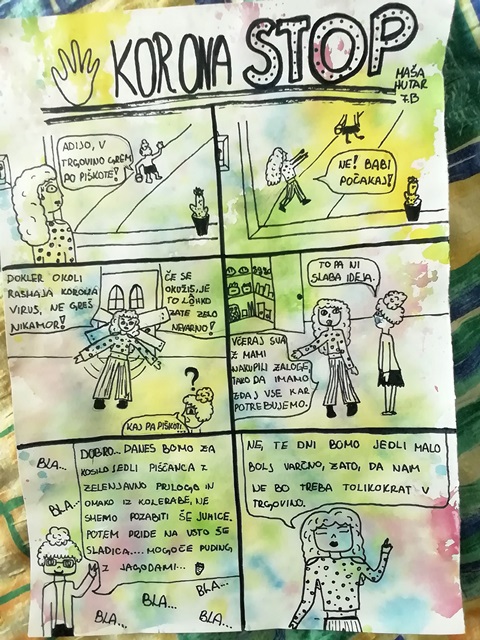 KORONA STOP
MAŠA
HUTAR
7.B
ADIJO, V
TRGOVINO GREM
PO PIŠKOTE!
NE! BABI
POČAKAJ!
DOKLER OKOLI
RAZSAJA KORONA
VIRUS, NE GREŠ
NIKAMOR!
ČE SE
OKUŽIŠ, JE
TO LAHKO
ZATE ZELO
NEVARNO!
?
KAJ PA PIŠKOTI
TO PA NI
SLABA IDEJA.
VČERAJ SVA
Z MAMI
NAKUPILI ZALOGE
TAKO DA IMAMO
ZDAJ VSE KAR
POTREBUJEMO.
BLA...
BLA...
DOBRO... DANES BOMO ZA
KOSILO JEDLI PIŠČANCA Z
ZELENJAVNO PRILOGO IN
OMAKO IZ KOLERABE, NE
SMEMO POZABITI ŠE JUHICE.
POTEM PRIDE NA VRSTO ŠE
SLADICA.... MOGOČE PUDING,
Z JAGODAMI...
BLA...
BLA...
BLA...
BLA...
NE, TE DNI BOMO JEDLI MALO
BOLJ VARČNO, ZATO, DA NAM
NE BO TREBA TOLIKOKRAT V
TRGOVINO.